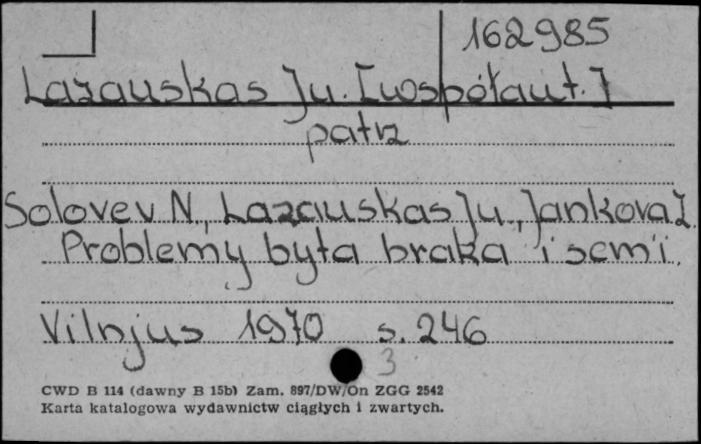 162985
Lazauskas Ju. [współaut.]
patrz
Solovev N., Lazauskas Ju., Jankova Z.
Problemy byta braka i sem'i.
Vilnjus 1970 s. 246
3
CWD B 114 (dawny B 15b) Zam. 897/DW/On ZGG 2542
Karta katalogowa wydawnictw ciągłych i zwartych.